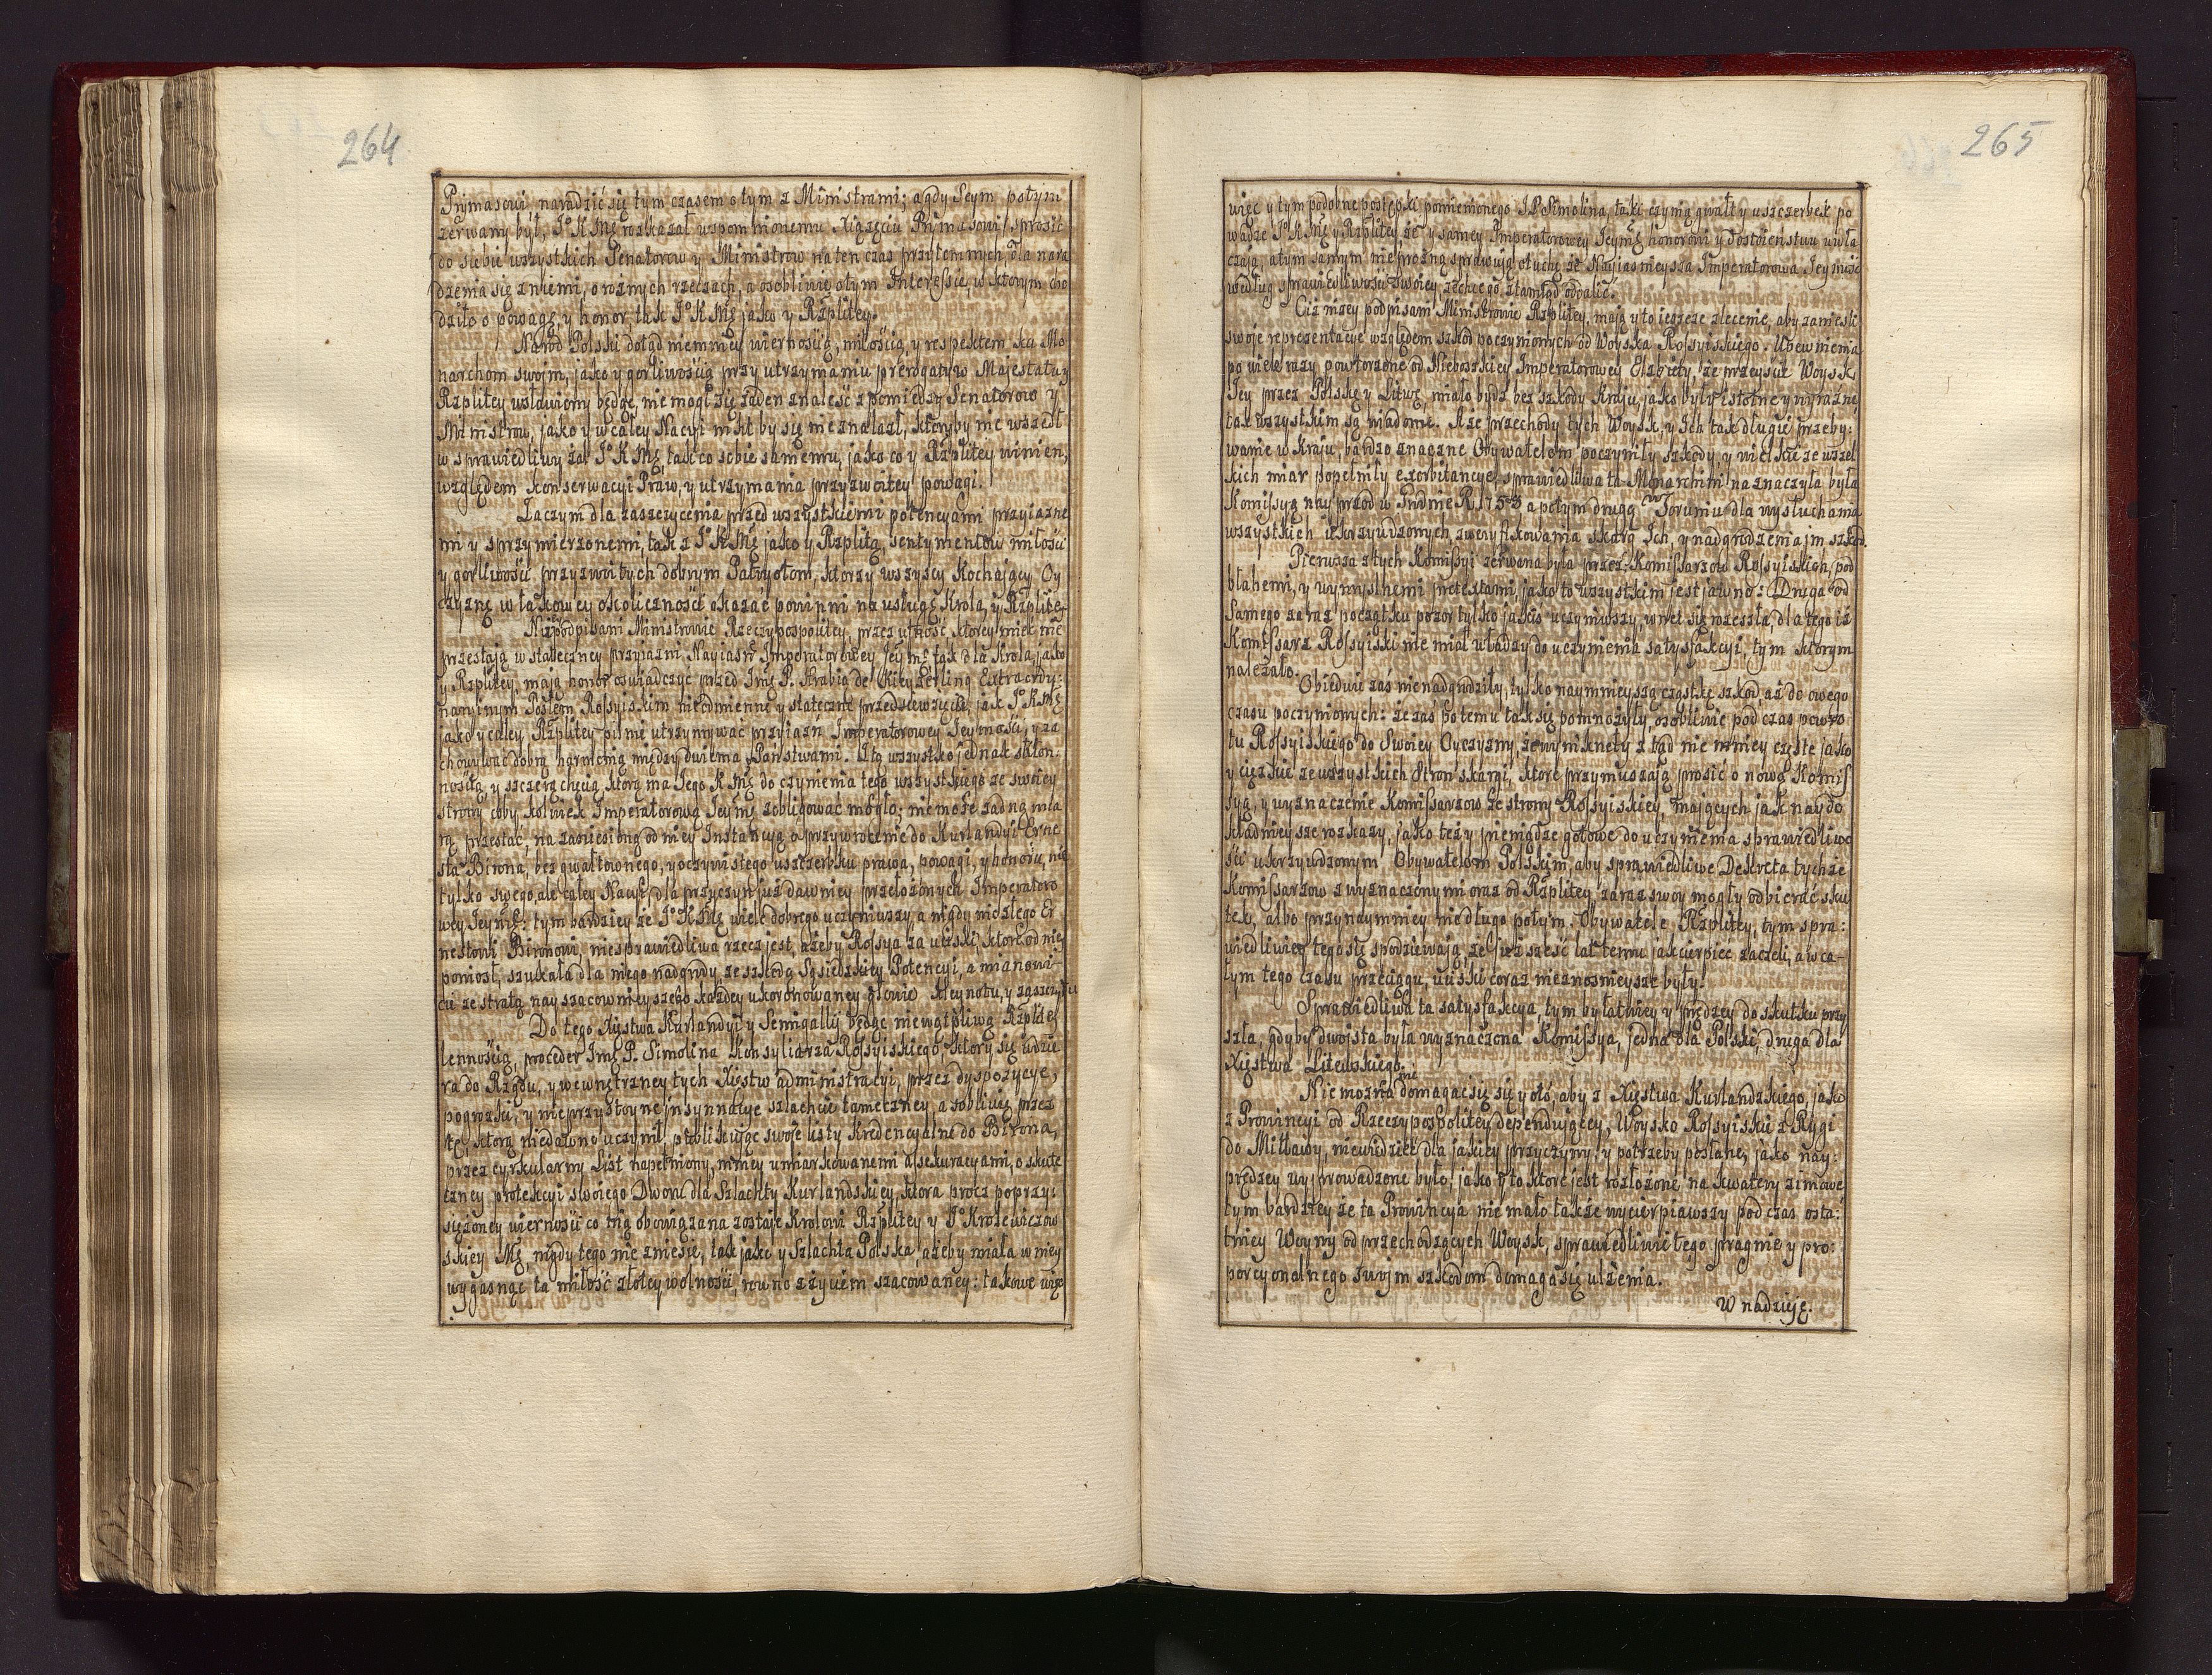 264
Prymasowi naradzić się tym czasem o tym z Ministrami; a gdy Seym potym
zerwany był, Jº K Mę rozkazał wspomnionemu Xiążęciu Prymasowi sprosić
do siebie wszystkich Senatorow y Ministrow na ten czas przytomnych, dla nara
dzenia się z niemi, o roznych rzeczach, a osobliwie o tym Interessie, w ktorym cho
dziło o powagę y honor, tak Jº K Mę jako y Rzplitey.
Narod Polski dotąd niemniey wiernością, miłością, y respektem ku Mo
narchom swoim, jako y gorliwością przy utrzymaniu prerogatyw Majestatu y
Rzplitey wsławiony będąc, nie mogł się żaden znaleść z pomiędzy Senatorow y
Ministrow, jako y w całey Nacyi nikt by się nie znalazł, ktoryby nie wszedł
w sprawiedliwy żal Jº K Mę, tak co sobie samemu, jako co y Rzplitey winien,
względem konserwacyi Praw, y utrzymania przyzwoitey powagi.
Zaczym dla zaszczycenia przed wszystkiemi potencyami przyiazne
mi y sprzymierzonemi, tak z Jº K Mę jako y Rzplitą, sentymentow miłości
y gorliwości przyzwoitych dobrym Patryotom, ktorzy wszyscy Kochający Oy
czyznę w takowey okoliczności okazać powinni na usługę Krola, y Rzplitey
Niżpodpisani Ministrowie Rzeczypospolitey, przez ufność ktorey mieć nie
przestają w stateczney przyiazni Nayiasn Imperatorowey Jeymę tak dla Krola jako
y Rzplitey, mają honor oswiadczyć przed Jmę P. Hrabią de Keyzerling Extraordy:
naryinym Posłem Rossyiskim nieodmienne y stateczne przedsiewzięcie, jak Jº K Mę
jako y całey Rzplitey pilnie utrzymywać przyiazń Imperatorowey Jeymości, y za
chowywać dobrą harmonią między dwiema Państwami. Ta wszystko jednak skłon:
nością, y szczerą chęcią, ktorą ma Jego K Mę do czynienia tego wszystkiego ze swoiey
strony coby kolwiek Imperatorową Jeymę zobligować mogło; nie może żadną mia
rą przestać, na zaniesioną od niey Instancyą o przywrocenie do Kurlandyi Erne
sta Birona, bez gwałtownego, y oczywistego uszczerbku prawa, powagi, y honoru, nie
tylko swego, ale całey Nacyi, dla przyczyn już dawniey przełożonych Imperatoro
wey Jeymę: tym bardziey że Jº K Mę wiele dobrego uczyniwszy, a nigdy nic złego Er
nestowi Bironowi, niesprawiedliwa rzecz jest, ażeby Rossya za uciski, ktore od niey
poniosł, szukała dla niego nadgrody, ze szkodą Sąsiedzkiey Potencyi, a mianowi-
cie ze stratą nayszacownieyszego każdey ukoronowaney głowie kleynotu, y zaszczytu
Do tego Xięstwa Kurlandyi y Semigallij będąc niewątpliwą Rzpltey
lennością, proceder Jmę P. Simolina Konsyliarza Rossyiskiego, ktory się wdzie
ra do Rządu, y wewnętrzney tych Xięstw administracyi, przez dyspozycye,
pogrozki, y nieprzystoyne insynnacye szlachcie tameczney, a osobliwie przez
tę, ktorą niedawno uczynił, publikując swoje listy Kredencyalne do Birona,
przez cyrkularny List napełniony, mniey umiarkowanemi assekuracyami, o skute
czney protekcyi swoiego Dworu dla Szlachty Kurlandskiey, ktora procz poprzy:
siężoney wierności co nią obowiązana zostaje Krolowi Rzplitey y Jº Krolewiczow
skiey Mę, nigdy tego nie zniesie, tak jako y Szlachta Polska, ażeby miała w niey
wygasnąć ta miłość złotey wolności, rowno z życiem szacowaney: takowe więc
265
więc y tym podobne postępki pomienionego J P Simolina, taki czynią gwałt y uszczerbek po
wadze Jº K Mę y Rzplitey, że y samey Imperatorowey Jeymę honorowi y dostoieństwu uwła
czają, a tym samym nieprożną sprawują otuchę że Nayiasnieysza Imperatorowa Jeymość
według sprawiedliwości Swoiey, zechce go ztamtąd oddalić.
Ciż niżey podpisani Ministrowie Rzplitey, mają y to ieszcze zlecenie, aby zanieśli
swoje reprezentacye względem szkod poczynionych od Woyska Rossyiskiego. Upewnienia
po wiele razy powtorzone od Nieboszkiey Imperatorowey Elzbiety, że przeyście Woysk
Jey przez Polskę y Litwę, miało bydź bez szkody Kraju, jako były istotne y wyraźne,
tak wszystkim są wiadome. A że przechody tych Woysk, y Ich tak długie przeby:
wanie w Kraju, bardzo znaczne Obywatelom poczyniły szkody, y wielkie ze wszel
kich miar popełniły exorbitancye, sprawiedliwa ta Monarchini naznaczyła była
Komissyą nayprzod w Gudnie R. 1758 a potym drugą w Toruniu dla wysłuchania
wszystkich ukrzywdzonych, zweryfikowania skarg Ich, y nadgrodzenia im szkod.
Pierwsza z tych Komissyi zerwana była przez Komissarzow Rossyiskich, pod
błahemi, y wymyślnemi pretextami, jako to wszystkim jest jawno: Druga od
samego zaraz początku pozor tylko jakiś uczyniwszy, wnet się rozeszła, dla tego iż
Komissarz Rossyiski nie miał władzy do uczynienia satysfakcyi, tym ktorym
należało.
Obiedwie zaś nie nadgrodziły, tylko naymnieyszą cząstkę szkod, aż do owego
czasu poczynionych: że zaś potemu tak się pomnożyły, osobliwie pod czas powro
tu Rossyiskiego do Swoiey Oyczyzny, że wyniknęły z tąd nie mniey częste jako
y ciężkie ze wszystkich stron skargi, ktore przymuszają prosić o nową Komis
syą, y wyznaczenie Komissarzow ze strony Rossyiskiey, mających jak naydo
kładnieysze rozkazy, jako też y pieniądze gotowe do uczynienia sprawiedliwo
ści ukrzywdzonym Obywatelom Polskim, aby sprawiedliwe Dekreta tychże
Komissarzow z wyznaczonymi oraz od Rzplitey zaraz swoy mogły odbierać sku
tek, albo przynaymniey nie długo potym. Obywatele Rzplitey, tym spra:
wiedliwiey tego się spodziewają, że już sześć lat temu jak cierpieć zaczeli, a w ca-
łym tego czasu przeciągu, uciski coraz nieznosnieysze były.
Sprawiedliwa ta satysfakcya, tym by łatwiey y prędzey do skutku przy
szła, gdyby dwoista była wyznaczona Komissya, jedna dla Polski, druga dla
Xięstwa Litewskiego.
Nie można nie domagać się się y o to, aby z Xięstwa Kurlandzkiego, jako
z Prowincyi od Rzeczypospolitey dependującey, Woysko Rossyiskie z Rygi
do Mittawy, niewiedzieć dla jakiey przyczyny, y potrzeby posłane, jako nay:
prędzey wyprowadzone było, jako y to ktore jest rozłożone na kwatery zimowe
tym bardziey że ta Prowincya nie mało także wycierpiawszy pod czas osta:
tniey Woyny od przechodzących Woysk, sprawiedliwie tego pragnie y pro:
porcyonalnego swym szkodom domaga się ulżenia.
W nadzieję.